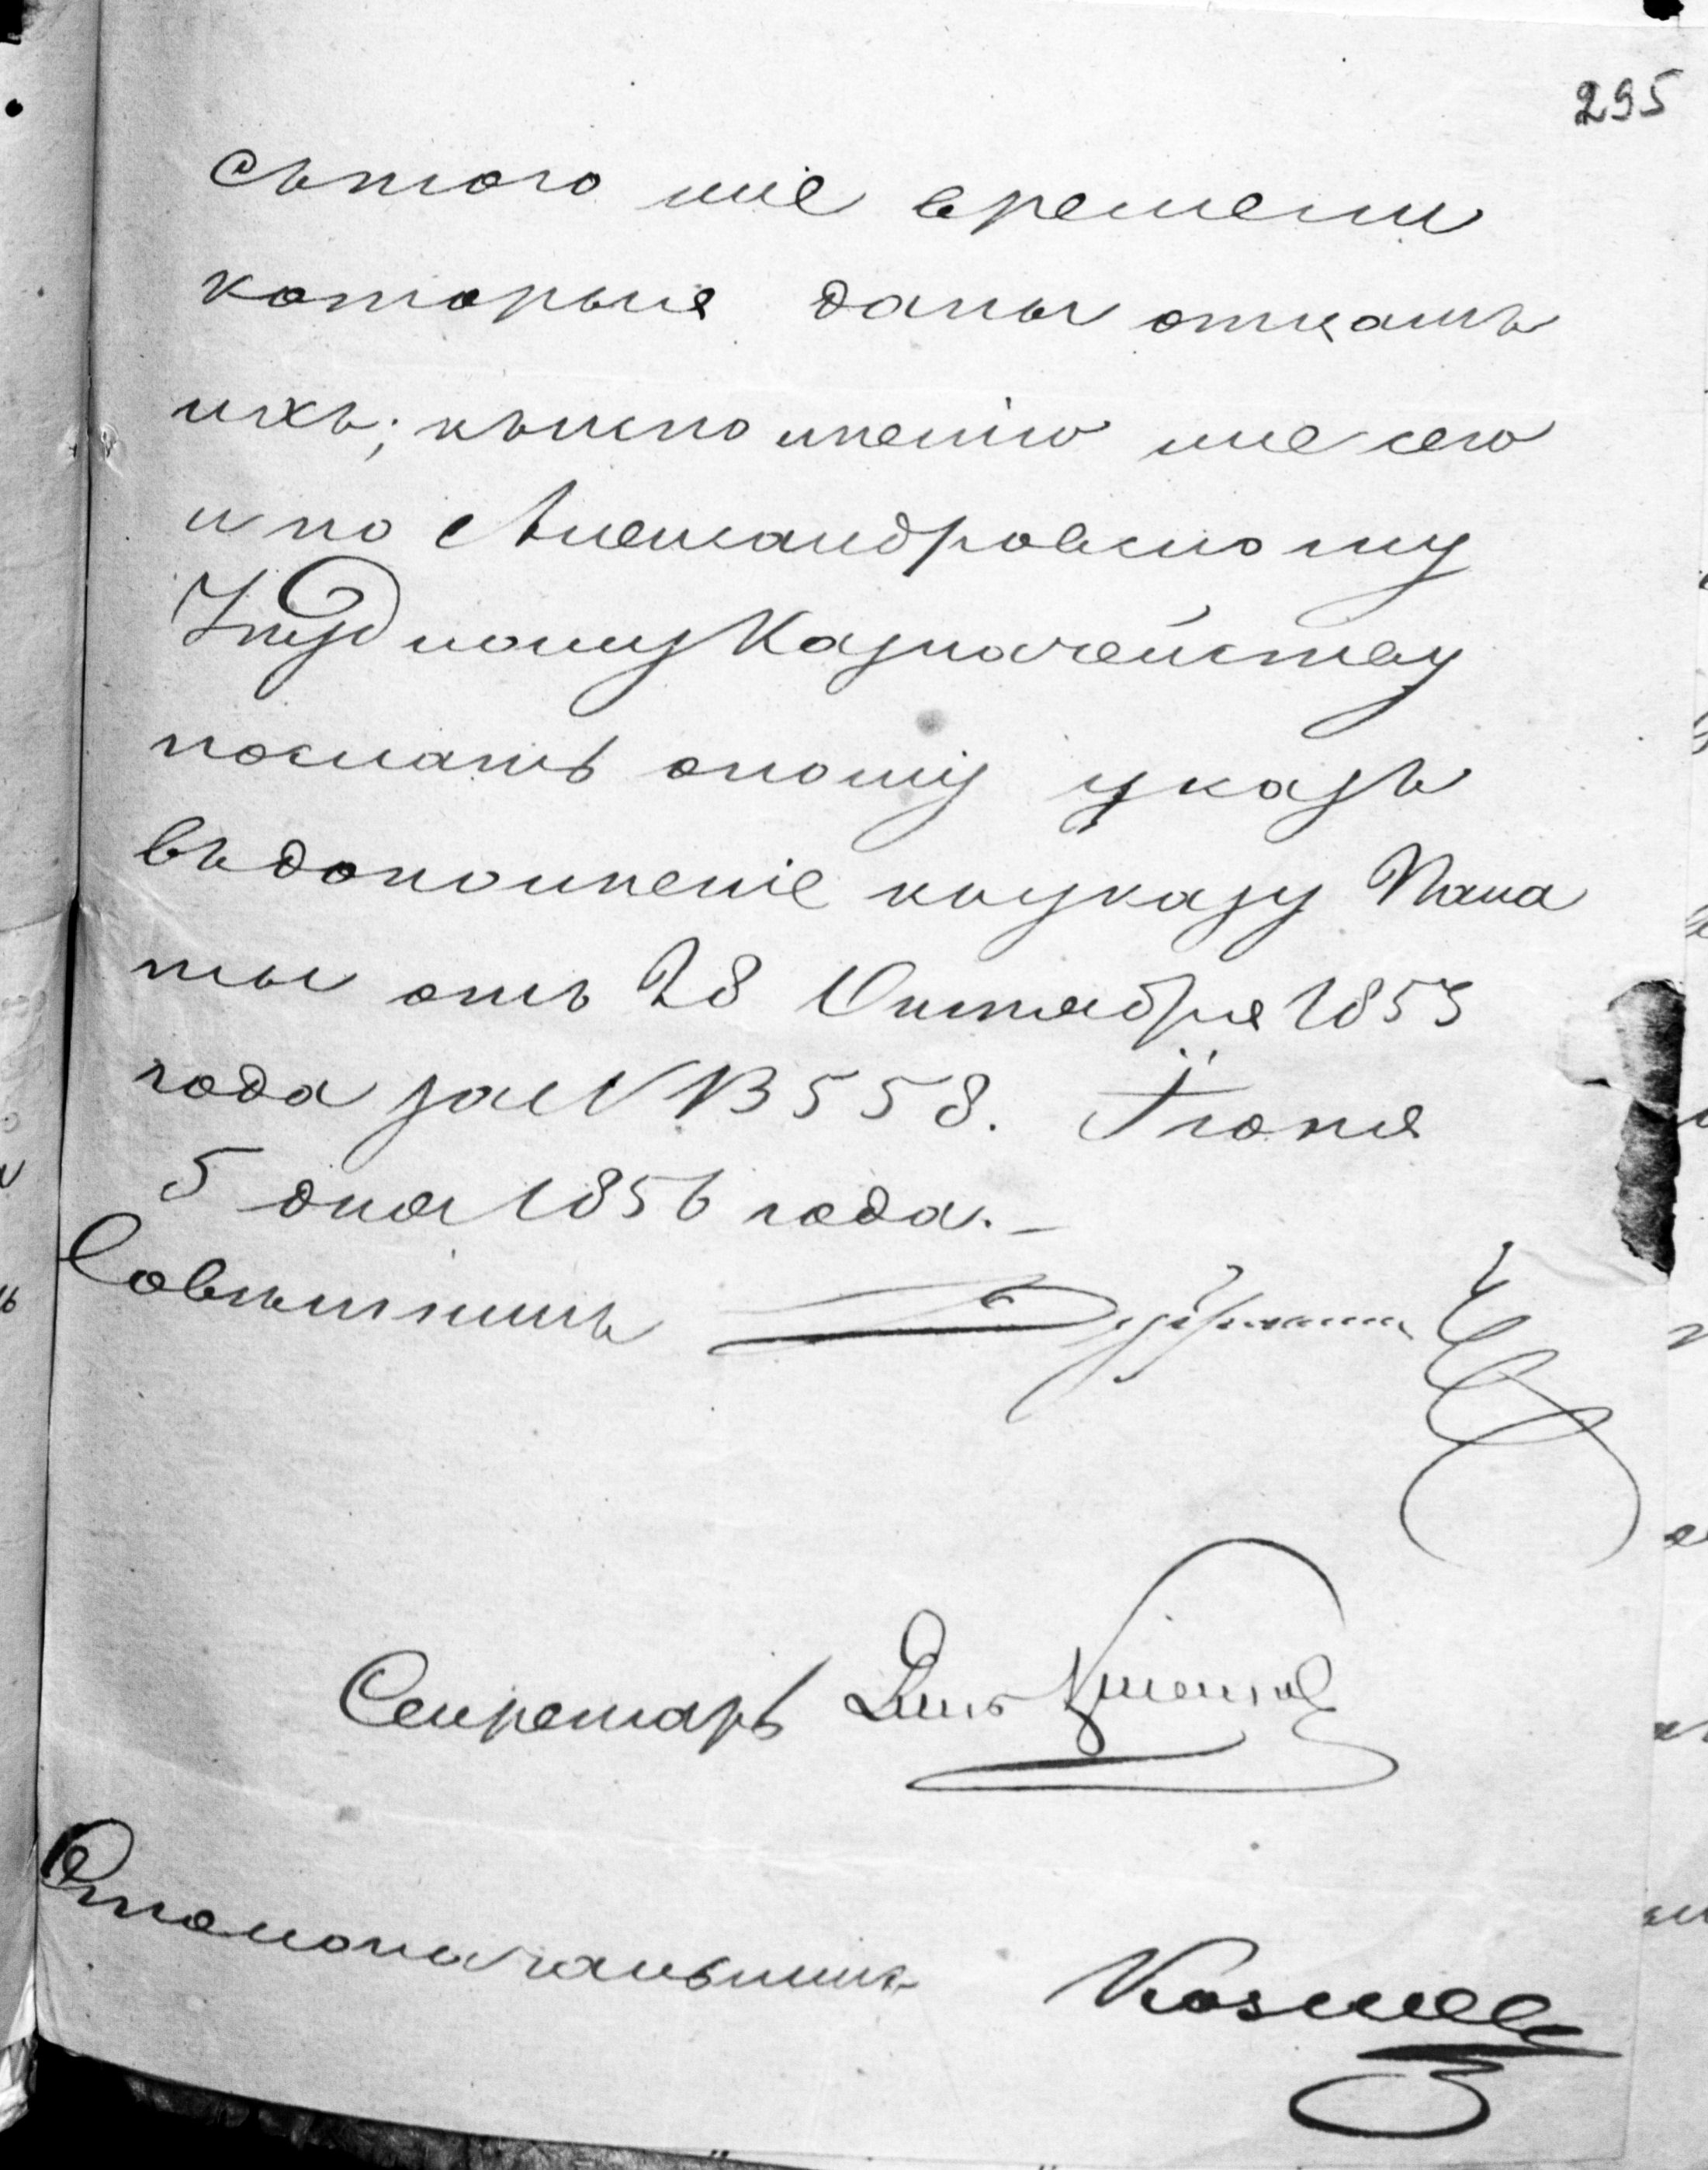 295
съ того же времени
которые даны отцамъ
ихъ; къ исполненію же сего
и по Александровскому
Уѣздному Казначейству
послать оному указъ
въ дополненіе къ указу Пала
ты отъ 28 Октября 1855
года за N 13558. Іюня
5 дня 1856 года.
Совѣтникъ
Секретарь
Столоначальникъ